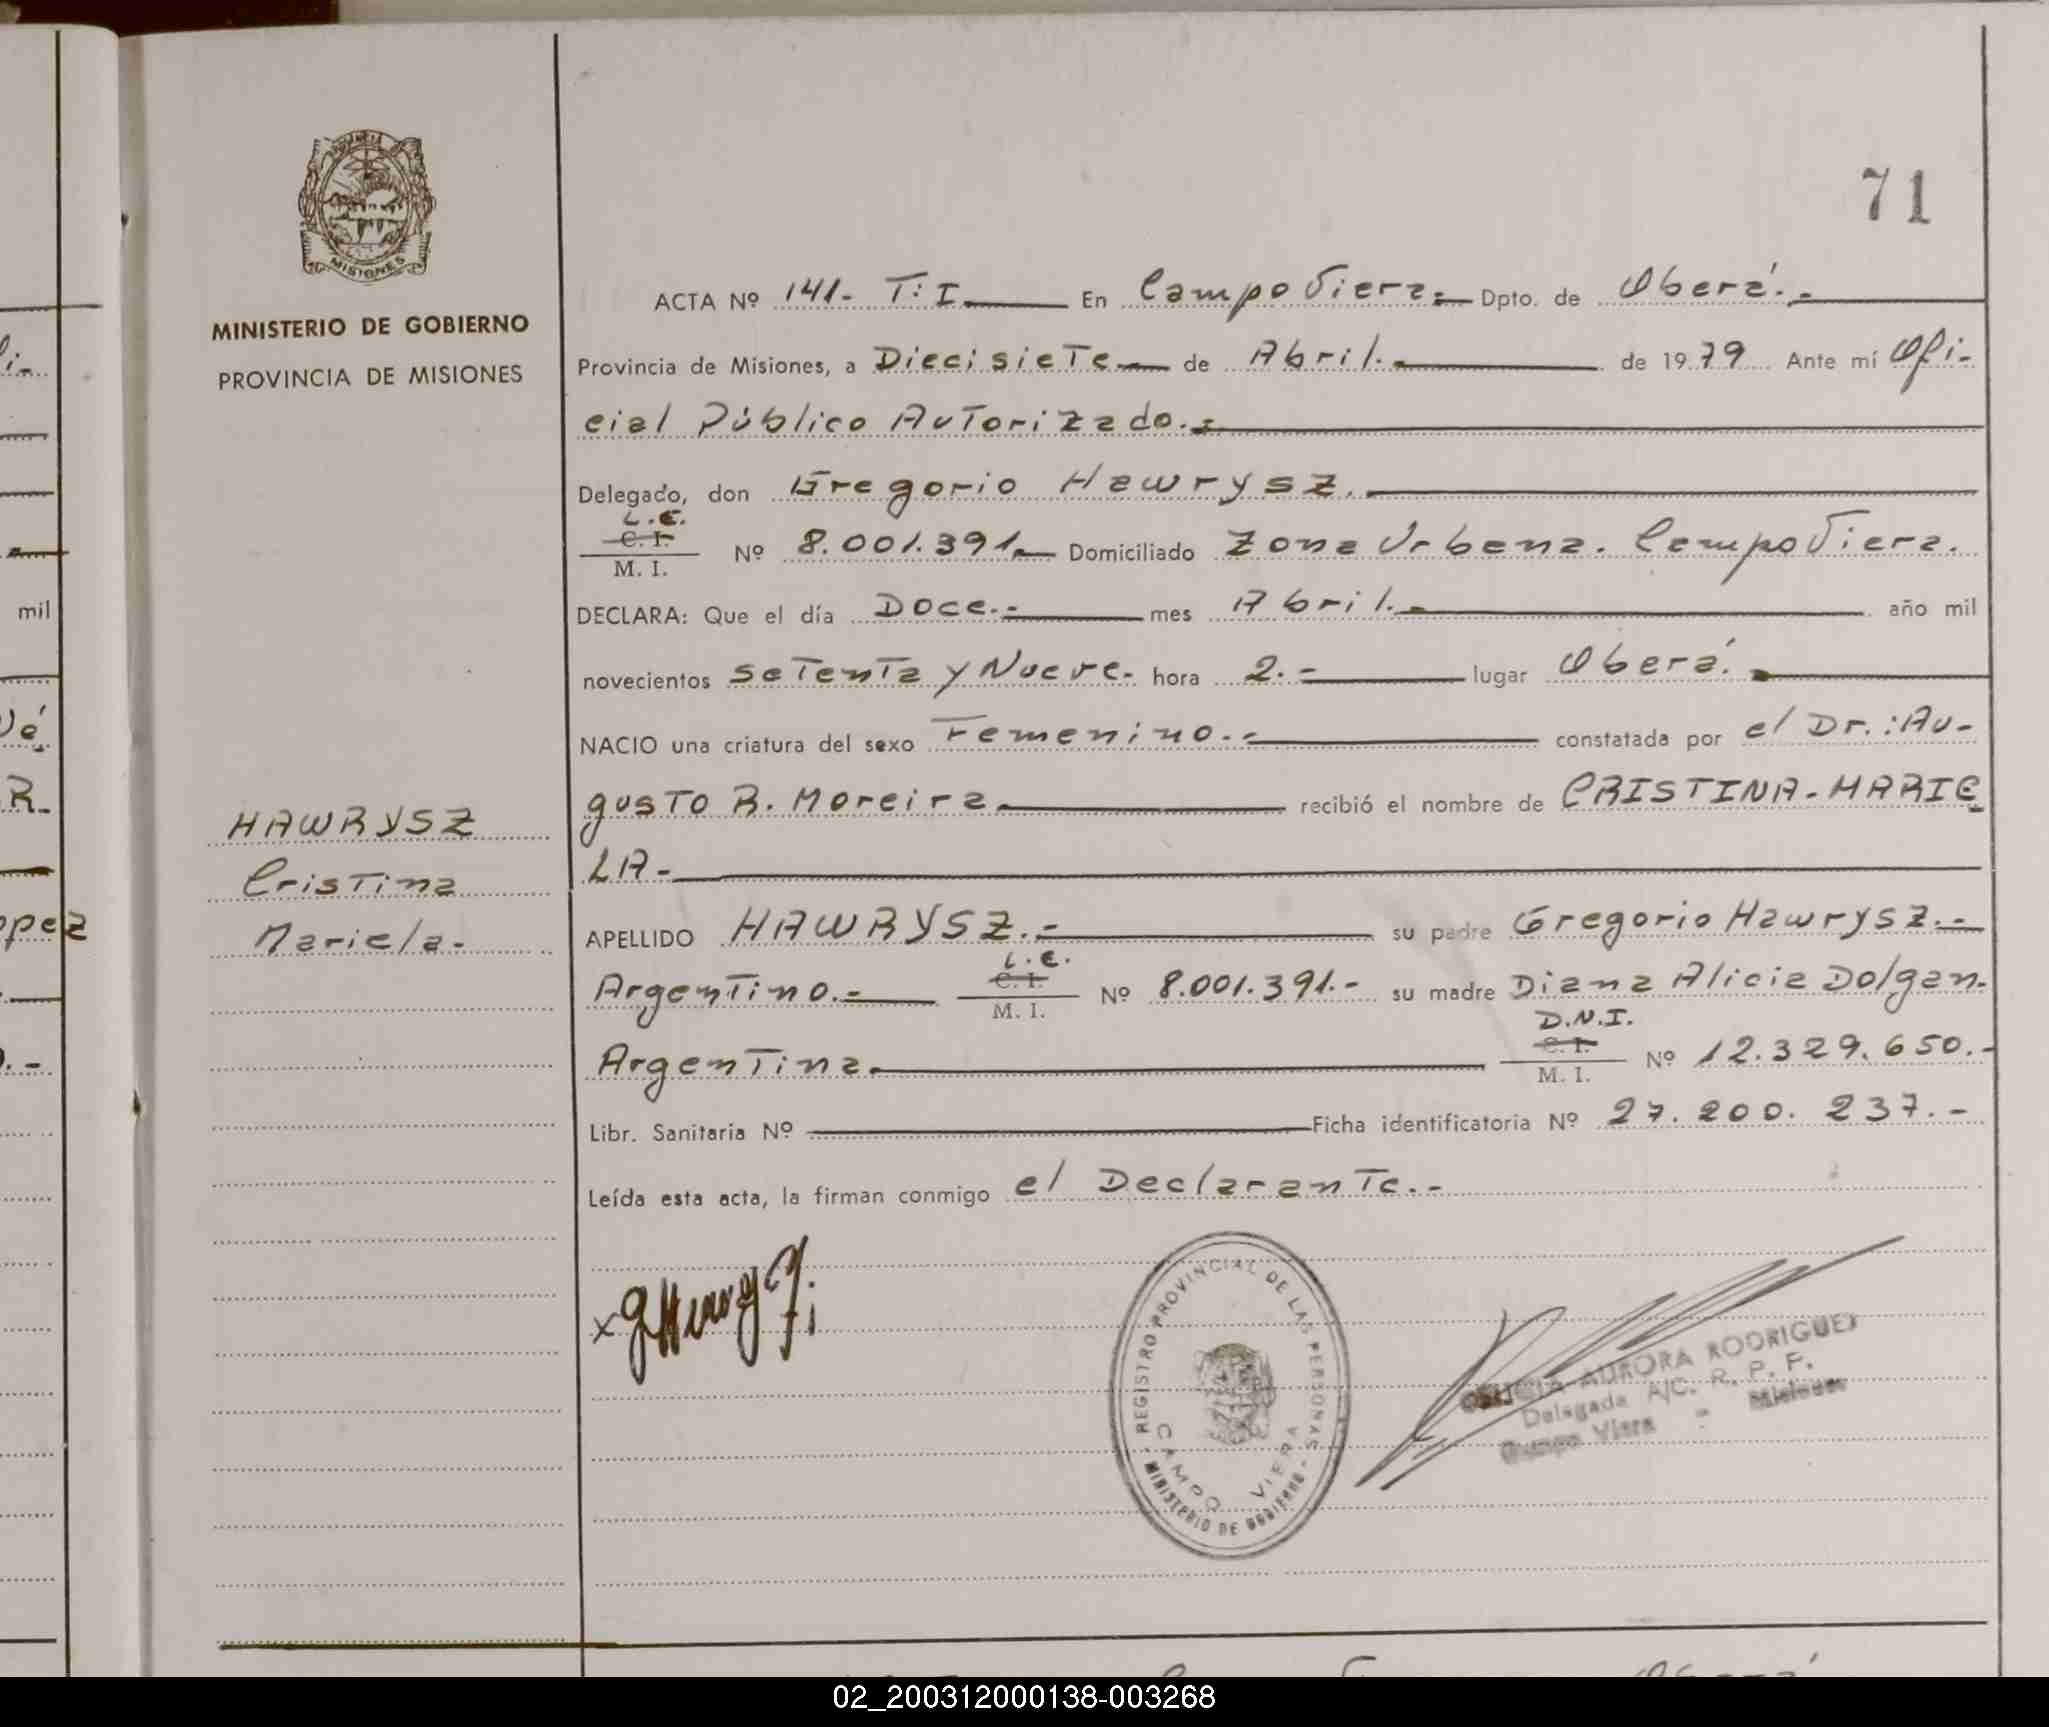 71
MISIONES
MINISTERIO DE GOBIERNO
PROVINCIA DE MISIONES
HAWRYSZ
Cristina
Mariela.-
ACTA Nº 141- T: I. En Campo Viera.- Dpto. de Oberá.-
Provincia de Misiones, a Diecisiete de Abril.- de 1979 Ante mí Ofi-
cial Público Autorizado.-
Delegado, don Gregorio Hawrysz.
L.E.
C. I.
M. I. Nº 8.001.391.- Domiciliado Zona Urbana. Campo Viera.
DECLARA: Que el día Doce.- mes Abril.- año mil
novecientos setenta y Nueve.- hora 2.- lugar Oberá.-
NACIO una criatura del sexo Femenino.- constatada por el Dr.: Au-
gusto R. Moreira. recibió el nombre de CRISTINA-MARIE
LA-
APELLIDO HAWRYSZ.- su padre Gregorio Hawrysz.-
L.E.
Argentino.- C. I.
M. I. Nº 8.001.391.- su madre Diana Alicia Dolgan.
D.N.I.
Argentina. C. I.
M. I. Nº 12.329.650.-
Libr. Sanitaria Nº Ficha identificatoria Nº 27.200.237.-
Leída esta acta, la firman conmigo el Declarante.-
REGISTRO PROVINCIAL DE LAS PERSONAS
CAMPO VIERA
MINISTERIO DE GOBIERNO
AURORA RODRIGUEZ
Delegada A/C. R. P. P.
Campo Viera - Misiones
mil
opez
02_200312000138-003268